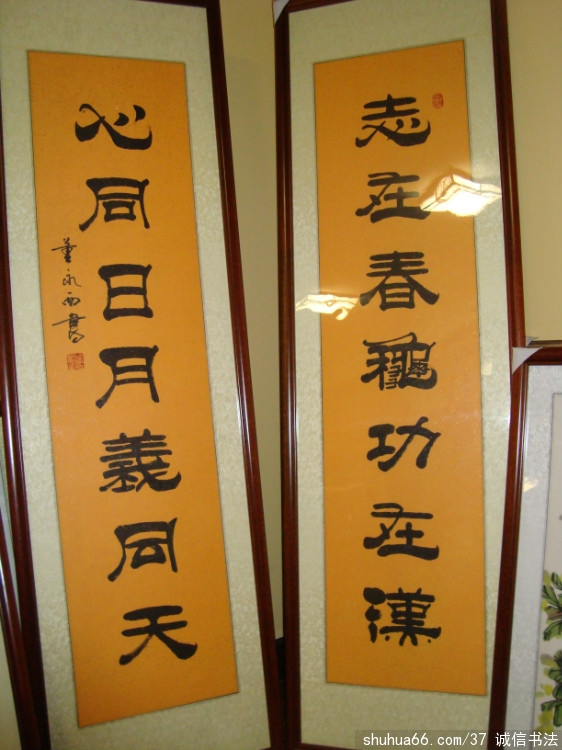 志在春龝功在漢
心同日月義同天
董永西書
shuhua66.com/37 诚信书法